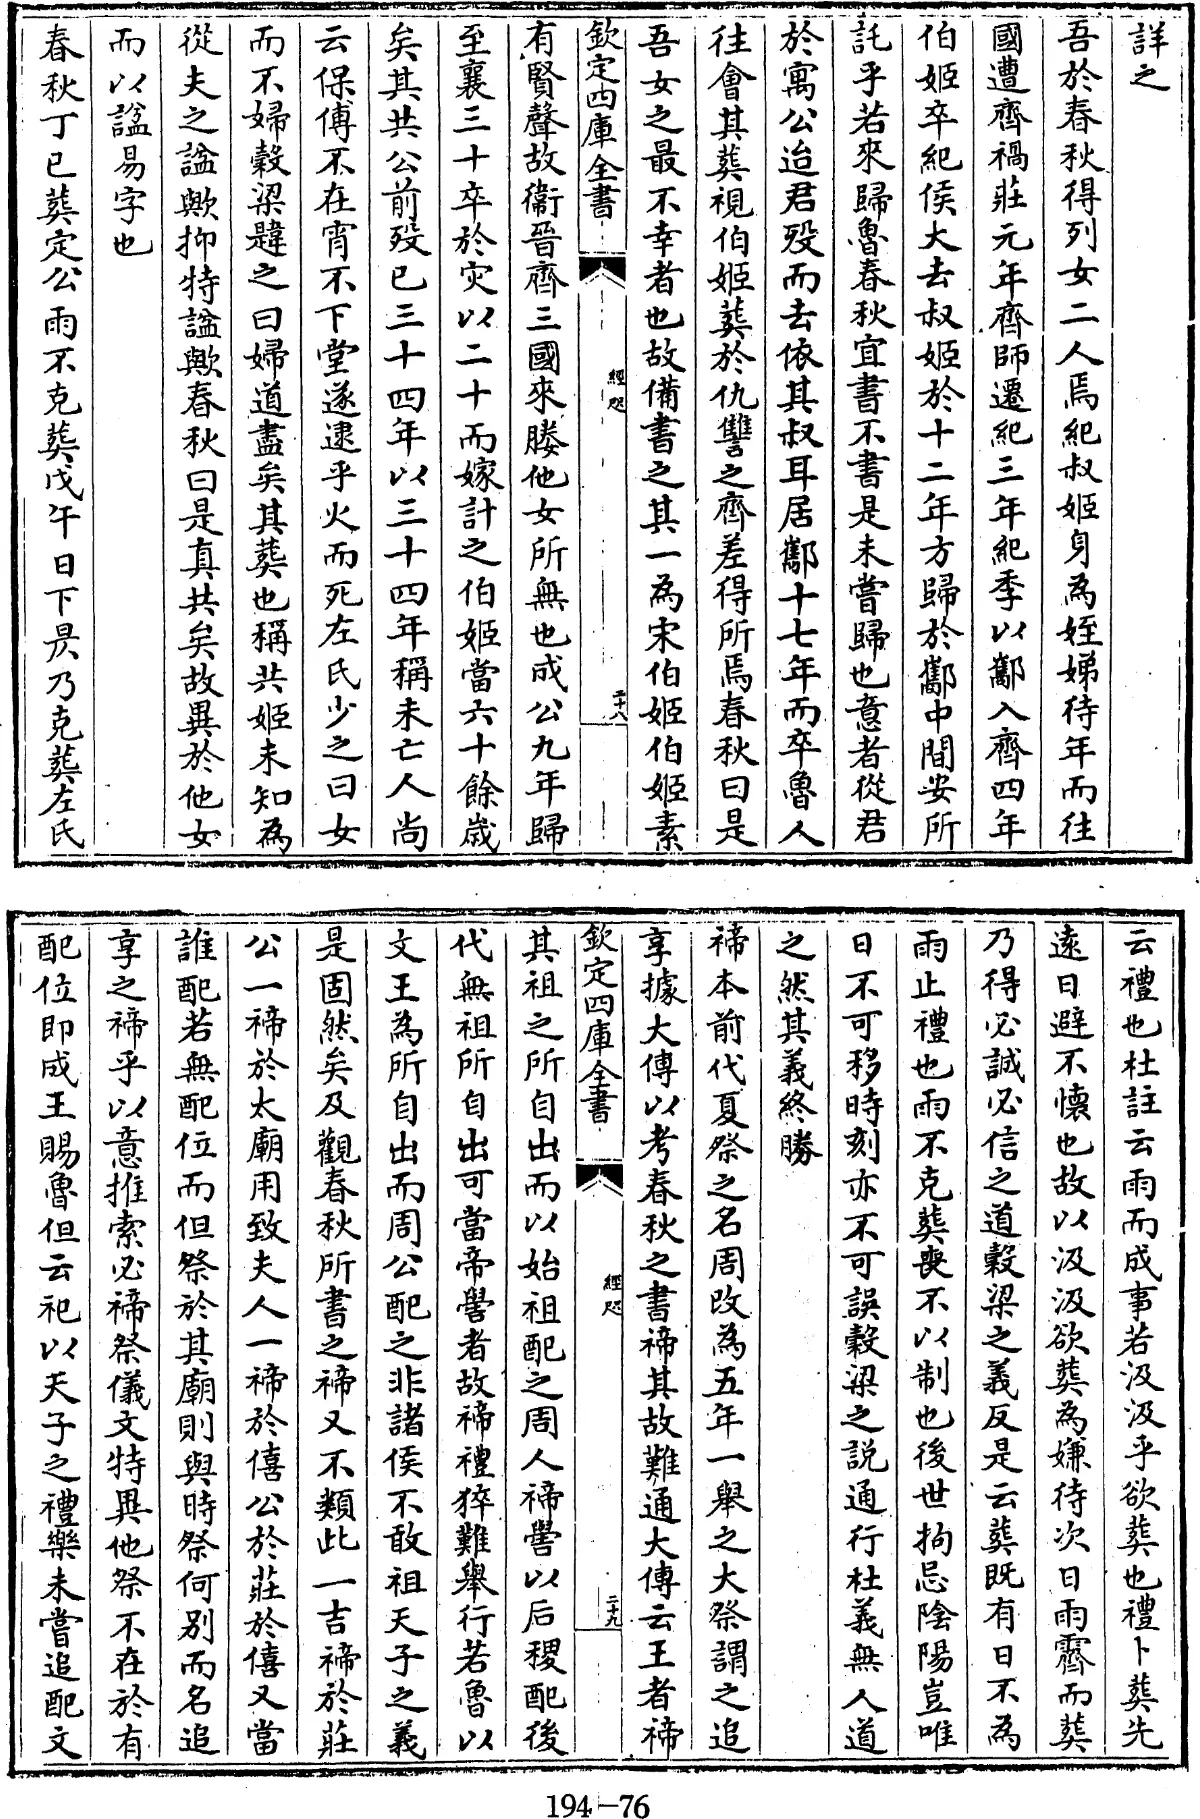 詳之
吾於春秋得列女二人焉紀叔姬身為姪娣待年而往
國遭齊禍莊元年齊師遷紀三年紀季以酅入齊四年
伯姬卒紀侯大去叔姬於十二年方歸於酅中間安所
託乎若來歸魯春秋宜書不書是未嘗歸也意者從君
於寓公迨君歿而去依其叔耳居酅十七年而卒魯人
往會其葬視伯姬葬於仇讐之齊差得所焉春秋曰是
吾女之最不幸者也故備書之其一為宋伯姬伯姬素
欽定四庫全書
經咫
二十八
有賢聲故衞晉齊三國來媵他女所無也成公九年歸
至襄三十卒於灾以二十而嫁計之伯姬當六十餘歲
矣其共公前殁已三十四年以三十四年稱未亡人尚
云保傅不在宵不下堂遂逮乎火而死左氏少之曰女
而不婦穀梁韙之曰婦道盡矣其葬也稱共姬未知為
從夫之諡歟抑特諡歟春秋曰是真共矣故異於他女
而以諡易字也
春秋丁巳葬定公雨不克葬戊午日下昃乃克葬左氏
云禮也杜註云雨而成事若汲汲乎欲葬也禮卜葬先
遠日避不懷也故以汲汲欲葬為嫌待次日雨霽而葬
乃得必誠必信之道穀梁之義反是云葬既有日不為
雨止禮也雨不克葬喪不以制也後世拘忌陰陽豈唯
日不可移時刻亦不可誤穀梁之説通行杜義無人道
之然其義終勝
禘本前代夏祭之名周改為五年一舉之大祭謂之追
享據大傳以考春秋之書禘其故難通大傳云王者禘
欽定四庫全書
經咫
二十九
其祖之所自出而以始祖配之周人禘嚳以后稷配後
代無祖所自出可當帝嚳者故禘禮猝難舉行若魯以
文王為所自出而周公配之非諸侯不敢祖天子之義
是固然矣及觀春秋所書之禘又不類此一吉禘於莊
公一禘於太廟用致夫人一禘於僖公於莊於僖又當
誰配若無配位而但祭於其廟則與時祭何別而名追
享之禘乎以意推索必禘祭儀文特異他祭不在於有
配位即成王賜魯但云祀以天子之禮樂未嘗追配文
194-76